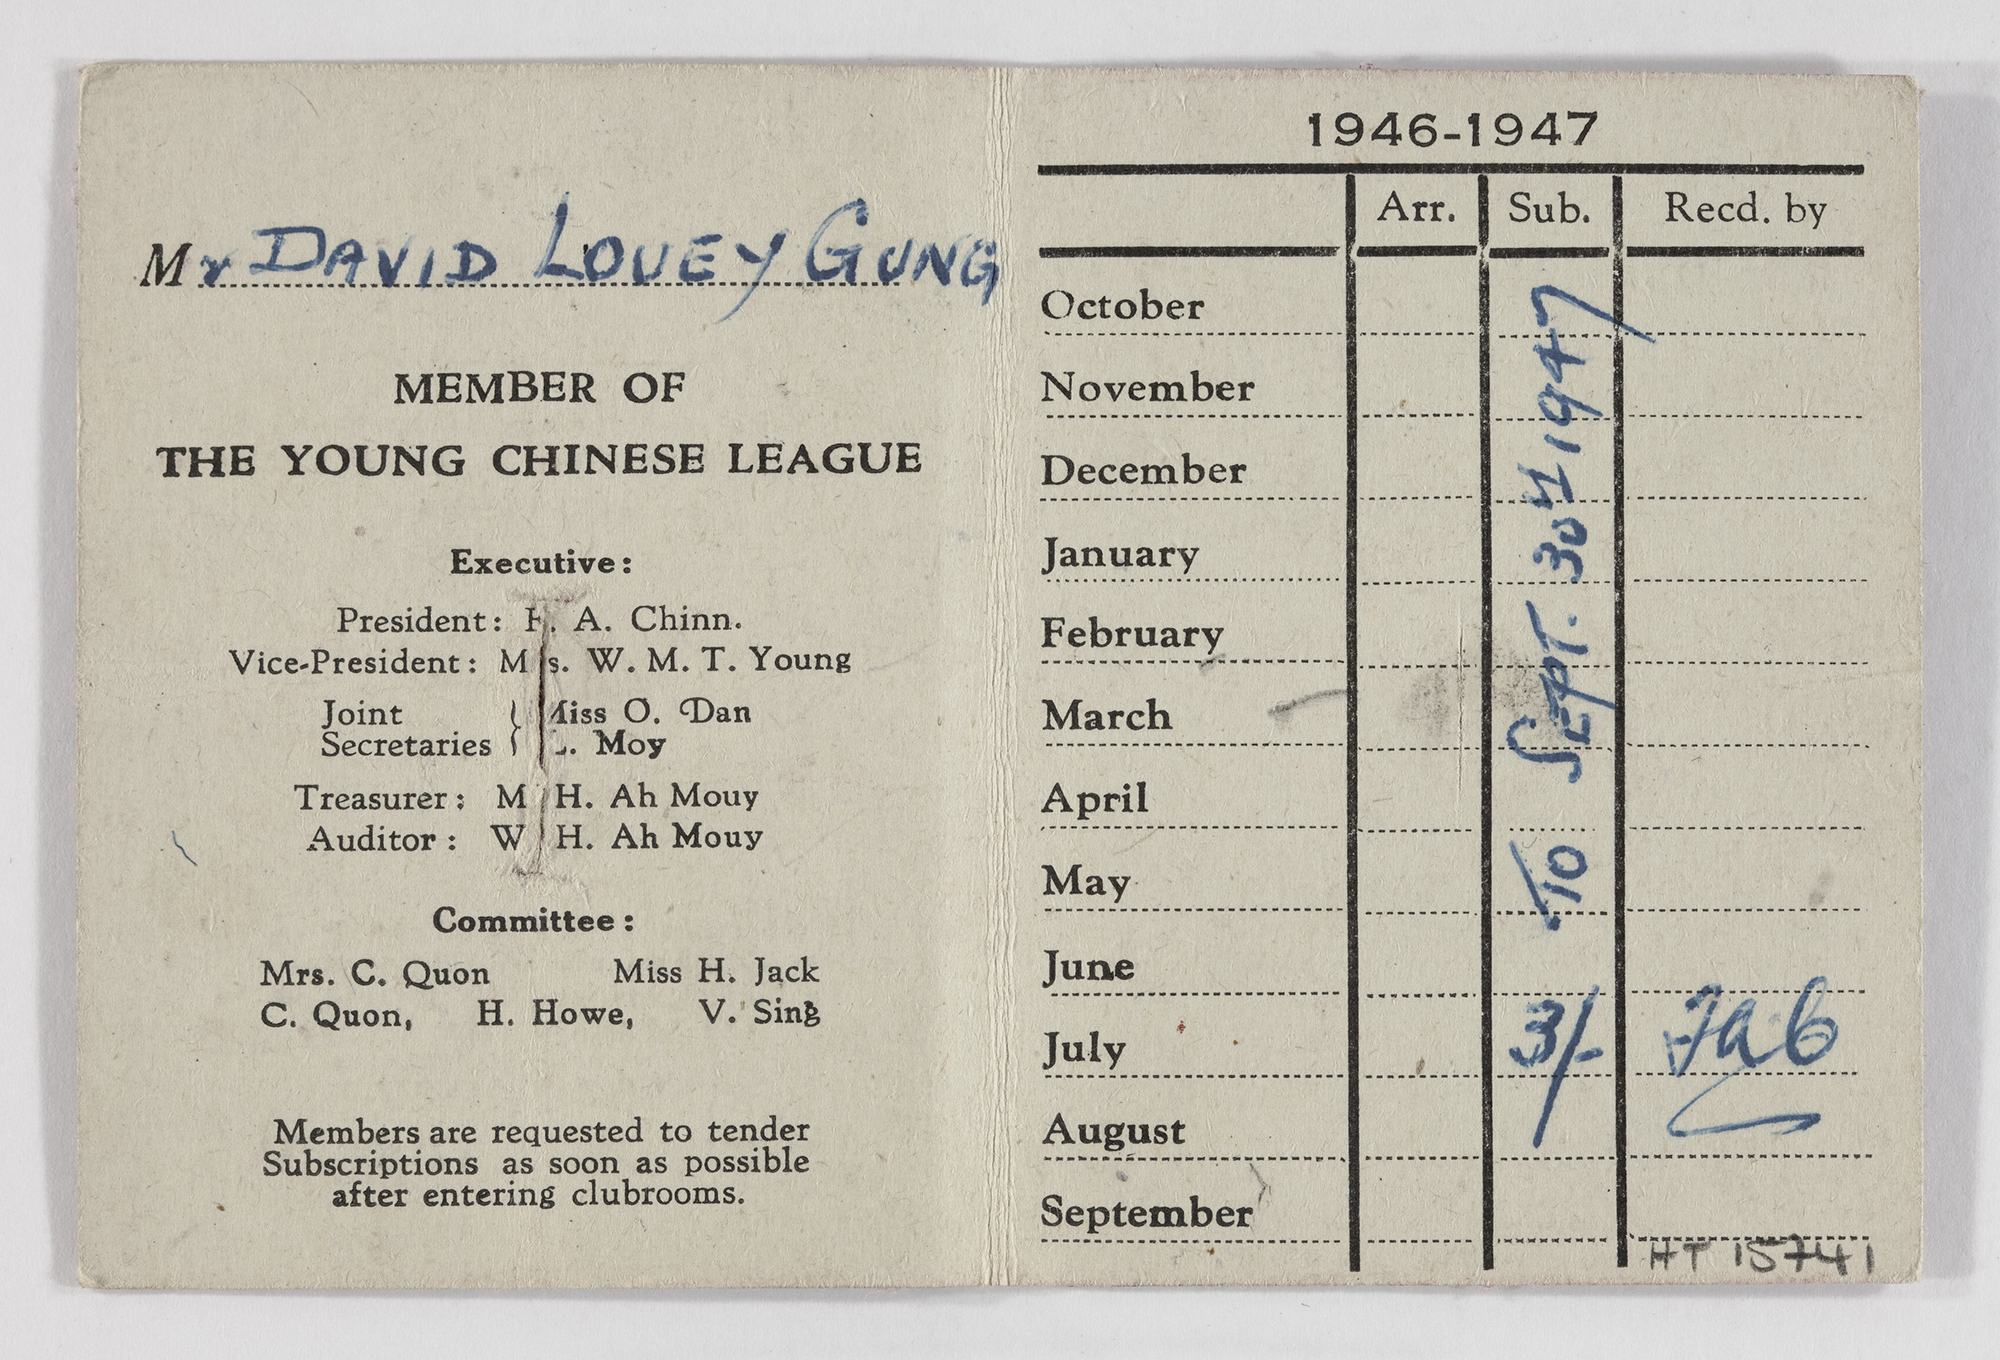 Mr DAVID LOUEY GUNG
MEMBER OF
THE YOUNG CHINESE LEAGUE
Executive:
President: A. Chinn.
Vice-President: Mrs. W. M. T. Young
Joint Secretaries
Miss O. Dan
Moy
Treasurer: M H. Ah Mouy
Auditor: W H. Ah Mouy
Committee:
Mrs. C. Quon Miss H. Jack
C. Quon, H. Howe, V. Sing
Members are requested to tender
Subscriptions as soon as possible
after entering clubrooms.
1946-1947
Arr. Sub. Recd. by
October
November
December
January
February
March
April
May
June
July 3/-
August
September
TO SEPT. 30th 1947
HT 15741